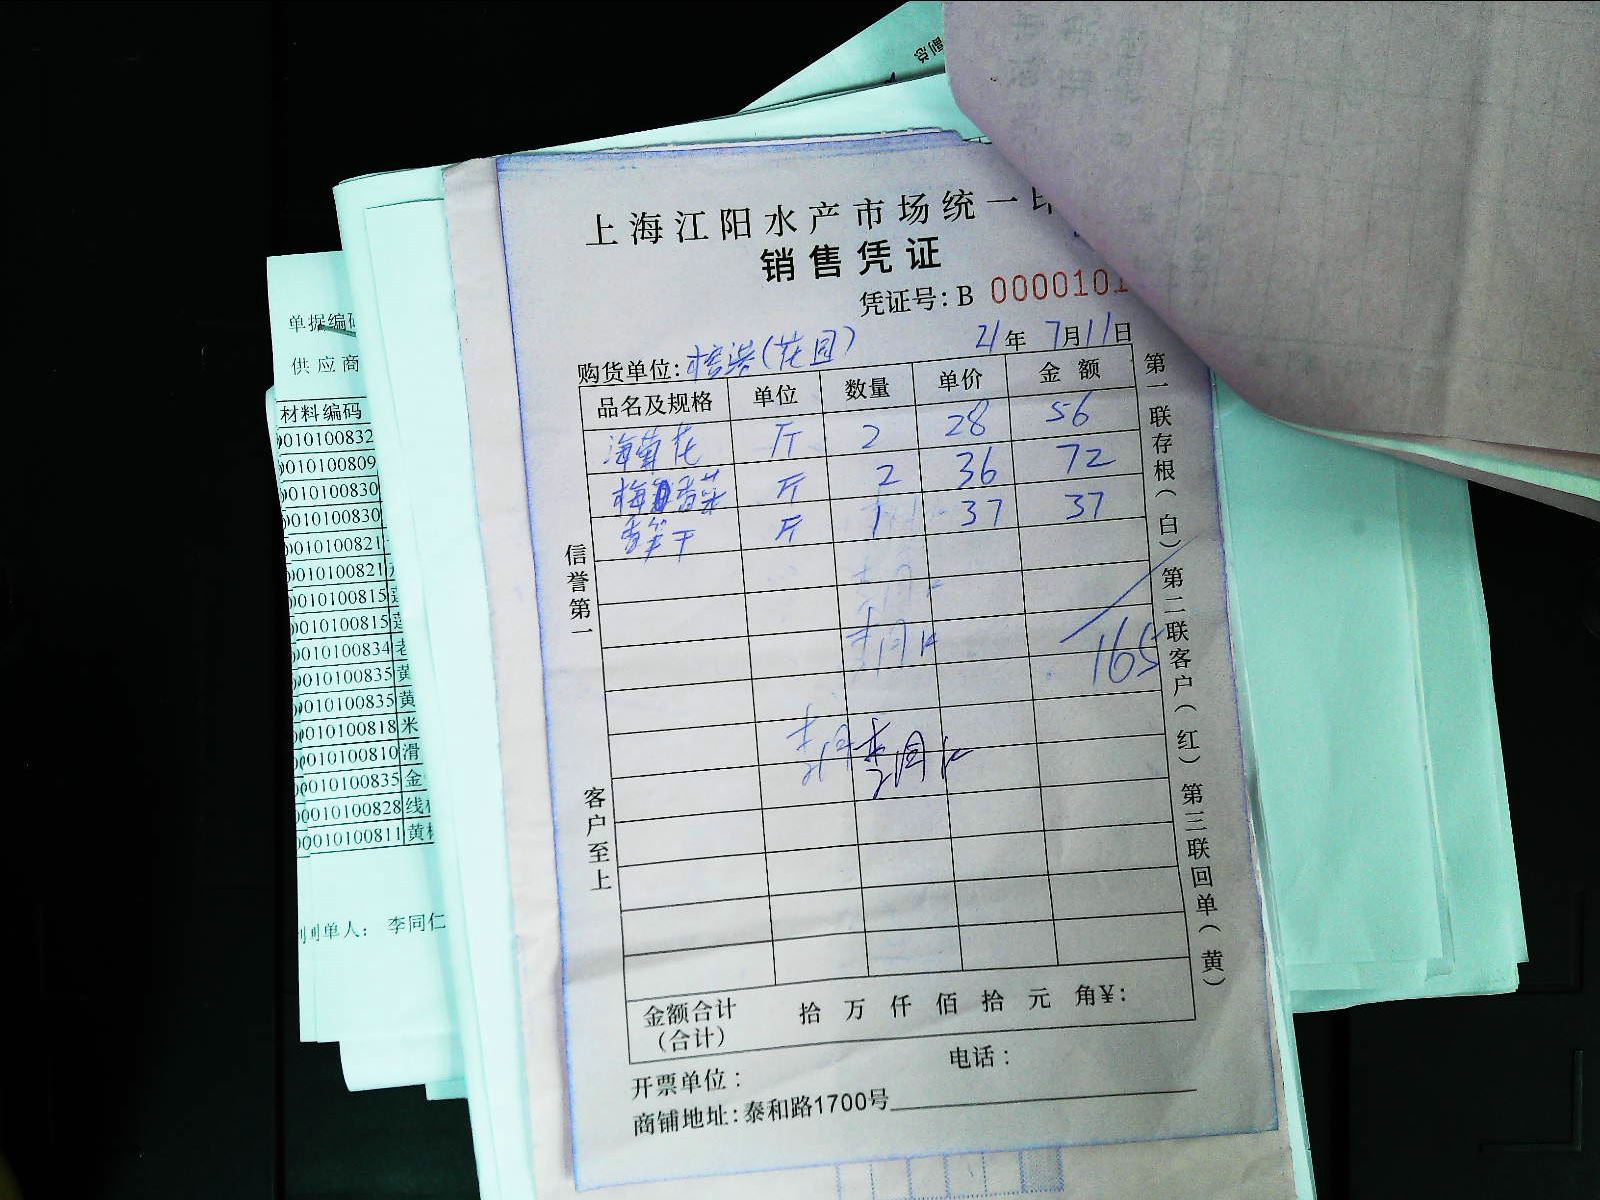 副总
上海江阳水产市场统一印
销售凭证
凭证号：B 0000101
21年 7月11日
购货单位：(花园)
品名及规格 单位 数量 单价 金额
海菊花 斤 2 28 56
梅香菜 斤 2 36 72
香笋干 斤 1 37 37
165
李同仁
李同仁
李同仁
信誉第一
客户至上
第一联存根(白) 第二联客户(红) 第三联回单(黄)
金额合计 拾 万 仟 佰 拾 元 角¥：
(合计)
开票单位： 电话：
商铺地址：泰和路1700号
单据编码
供应商
材料编码
010100832
010100809
010100830
010100830
010100821
010100821
010100815
010100815
010100834 老
010100835 黄
010100835 黄
010100818 米
010100810 滑
010100835 金
010100828 线
010100811 黄
制单人： 李同仁